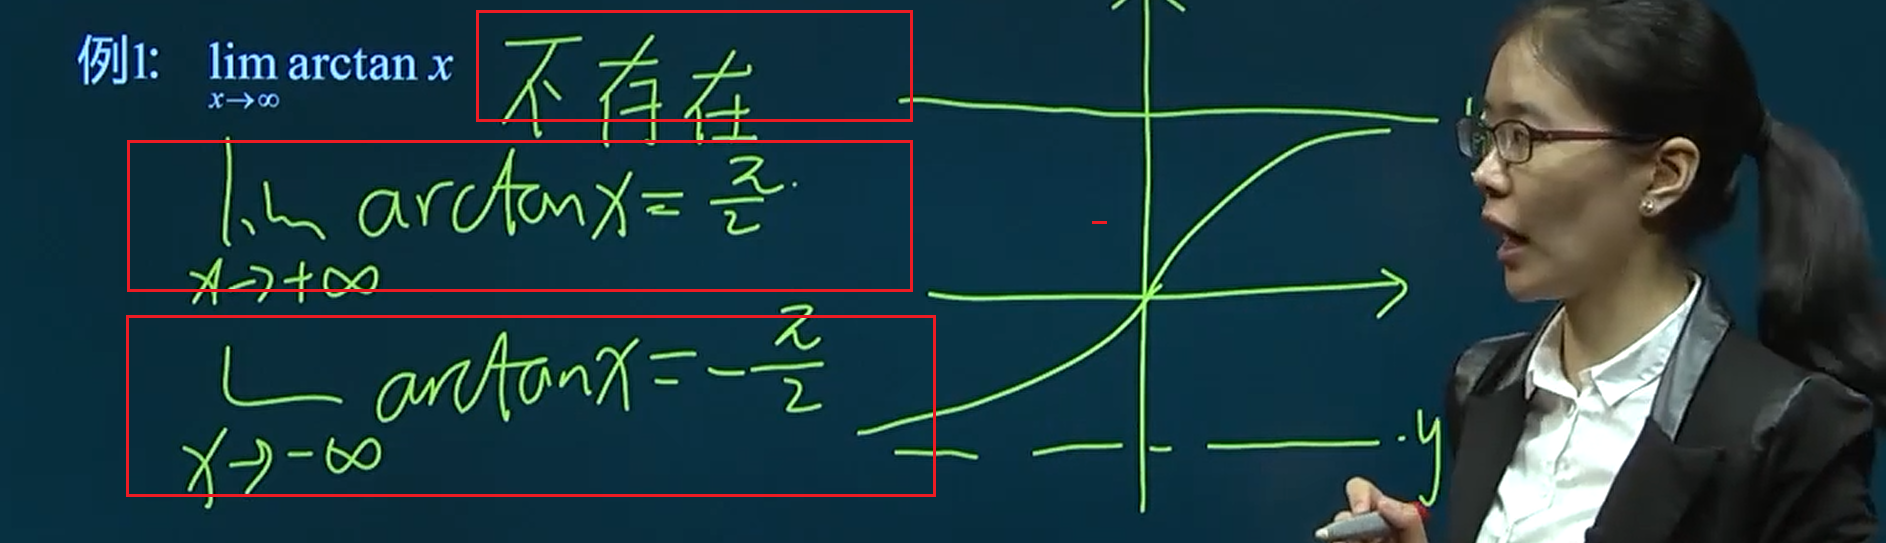 例1: lim arctan x 不存在
x→∞
lim arctanx = π/2
x→+∞
lim arctanx = -π/2
x→-∞
y